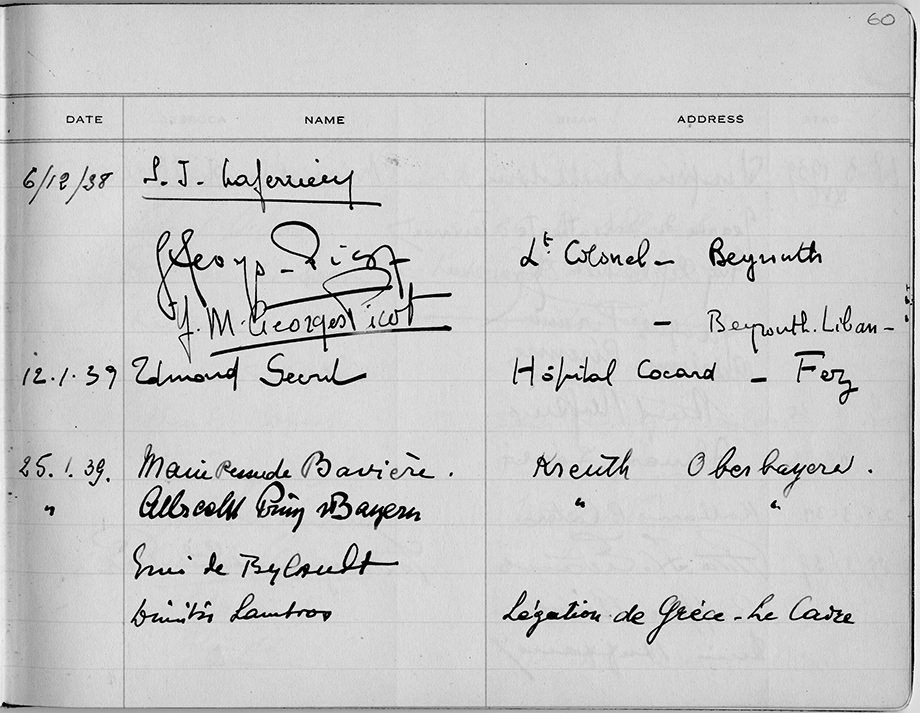 60
DATE NAME ADDRESS
6/12/38
Georges-Picot Lt Colonel - Beyrouth
Y. M. Georges Picot - Beyrouth. Liban -
12.1.39 Edmond Secret Hôpital Cocard - Fez
25.1.39. Marie Psse de Bavière. Kreuth Oberbayern.
" Albrecht Prinz v Bayern " "
de Bylandt
Dimitri Lambros Légation de Grèce - Le Caire